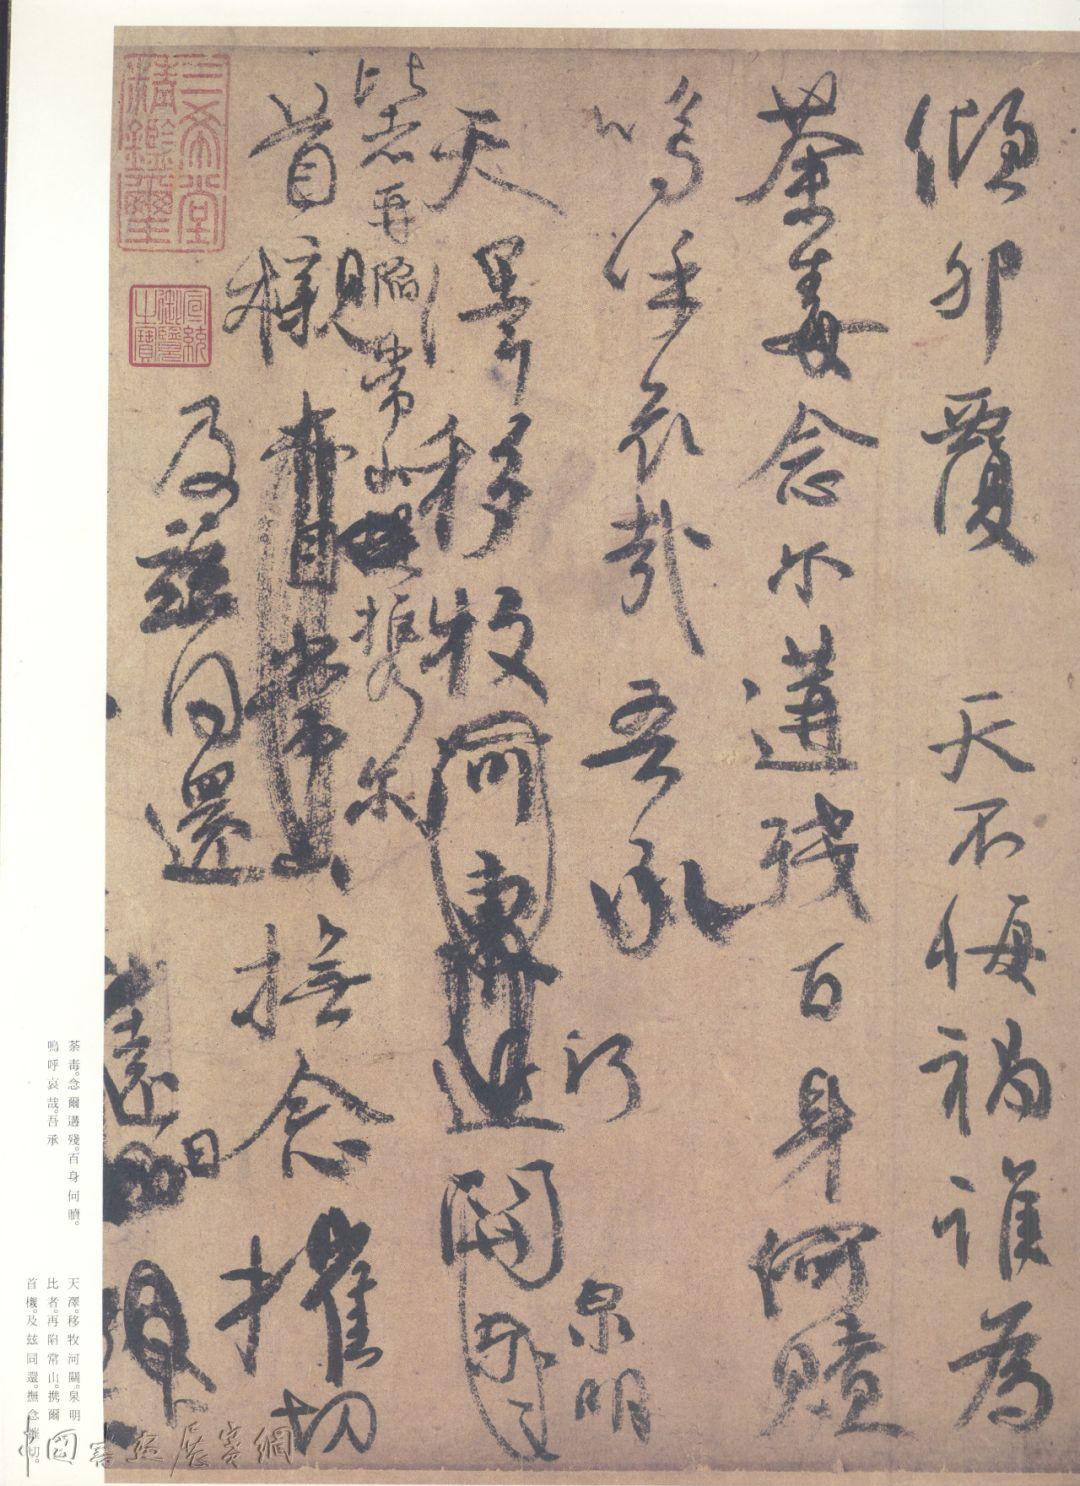 傾卵覆 天不悔禍誰為
荼毒念尔遘殘百身何贖
嗚乎哀哉吾承
泉明
天澤移牧河東近關
比者再陷常山攜尔
首櫬亦自常山撫念摧切
及茲同還
三希堂精鑑璽
宣統御覽之寶
荼毒。念爾遘殘。百身何贖。
嗚呼哀哉。吾承
天澤。移牧河關。泉明
比者。再陷常山。携爾
首櫬。及兹同還。撫念摧切。
中國書畫展賽網